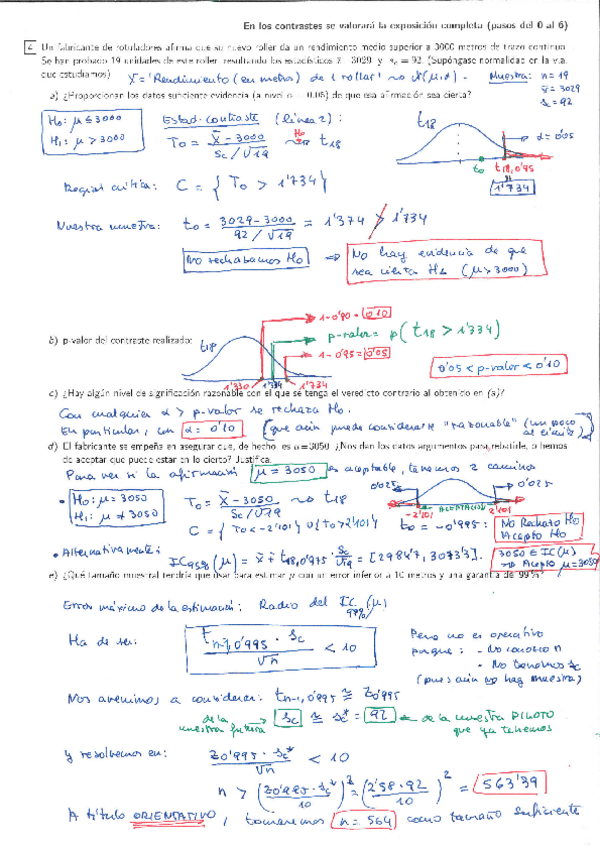 En los contrastes se valorará la exposición completa (pasos del 0 al 6)
Un fabricante de rotuladores afirma que su nuevo roller da un rendimiento medio superior a 3000 metros de trazo continuo.
Se han probado 19 unidades de este roller, resultando los estadísticos x̄ = 3029 y sc = 92. (Supóngase normalidad en la v.a.
que estudiamos) X = "Rendimiento (en metros) de 1 roller" ~ N(μ,σ). Muestra: n = 19
x̄ = 3029
sc = 92
a) ¿Proporcionan los datos suficiente evidencia (a nivel α = 0,05) de que esa afirmación sea cierta?
H0: μ ≤ 3000
H1: μ > 3000
Estad. contraste (línea 2):
T0 = X̄ - 3000 / Sc/√19 ~ t18
H0
t18
α = 0'05
t0 t18,0'95
1'734
Región crítica: C = { T0 > 1'734 }
Nuestra muestra: t0 = 3029 - 3000 / 92/√19 = 1'374 > 1'734
No rechazamos H0 ⇒ No hay evidencia de que
sea cierta H1 (μ > 3000)
b) p-valor del contraste realizado:
t18
1 - 0'90 = 0'10
p-valor = p( t18 > 1'374 )
1 - 0'95 = 0'05
1'330 1'374 1'734
0'05 < p-valor < 0'10
c) ¿Hay algún nivel de significación razonable con el que se tenga el veredicto contrario al obtenido en (a)?
Con cualquier α > p-valor se rechaza H0.
En particular, con α = 0'10 (que aún puede considerarse "razonable" (un poco
al límite))
d) El fabricante se empeña en asegurar que, de hecho, es μ=3050. ¿Nos dan los datos argumentos para rebatirle, o hemos
de aceptar que puede estar en lo cierto? Justifica.
Para ver si la afirmación μ = 3050 es aceptable, tenemos 2 caminos
0'025 0'025
-2'101 ACEPTACIÓN 2'101
• H0: μ = 3050
H1: μ ≠ 3050
T0 = X̄ - 3050 / Sc/√19 ~ t18
C = { T0 < -2'101 } ∪ { T0 > 2'101 }
t0 = -0'995: No Rechazo H0
Acepto H0
• Alternativamente: IC95%(μ) = x̄ ∓ t18,0'975 · sc/√19 = [2984'7, 3073'3]. 3050 ∈ IC(μ)
⇒ Acepto μ=3050
e) ¿Qué tamaño muestral tendría que usar para estimar μ con un error inferior a 10 metros y una garantía de 99%?
Error máximo de la estimación: Radio del IC99%(μ)
Ha de ser: tn-1,0'995 · sc / √n < 10
Pero no es operativo
porque: - No conozco n
- No tenemos sc
(pues aún no hay muestra)
Nos avenimos a considerar: tn-1,0'995 ≅ z0'995
de la muestra futura → sc ≅ sc* = 92 ← de la muestra PILOTO
que ya tenemos
y resolvemos en: z0'995 · sc* / √n < 10
n > (z0'995 · sc* / 10)² = (2'58 · 92 / 10)² = 563'39
A título ORIENTATIVO, tomaremos n = 564 como tamaño suficiente